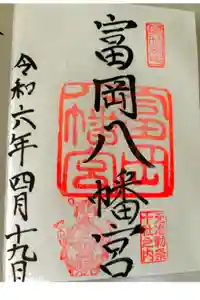 富岡八幡宮
令和六年四月十九日
富岡
八幡宮